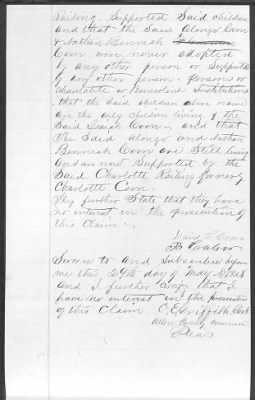 Railing, supported said children
and that the said Alonzo Coon
& Nathan Bennah
Coon were never adopted
by any other person or supported
by any other person or persons or
charitable or benevolent institutions
that the said children above named
are the only children living of the
said Isaiah Coon, and that
the said Alonzo and Nathan
Bennah Coon are still living
and are now supported by the
said Charlotte Railing formerly
Charlotte Coon.
They further state that they have
no interest in the prosecution of
this claim.
Sworn to and subscribed before
me this 29th day of May
and I further certify that I
have no interest in the prosecution
of this claim. C. E. Griffith, Clerk
Allen County Common
Pleas